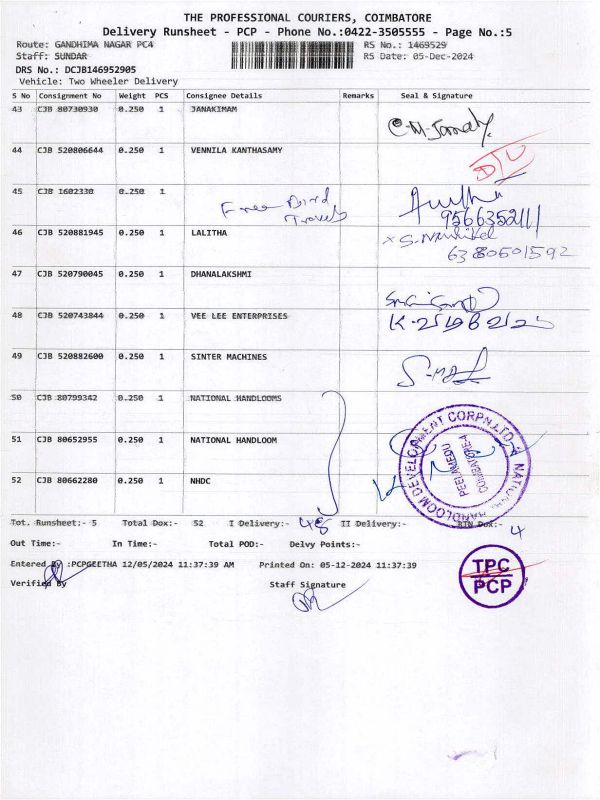 THE PROFESSIONAL COURIERS, COIMBATORE
Delivery Runsheet - PCP - Phone No.:0422-3505555 - Page No.:5
Route: GANDHIMA NAGAR PC4 RS No.: 1469529
Staff: SUNDAR RS Date: 05-Dec-2024
DRS No.: DCJB146952905
Vehicle: Two Wheeler Delivery
S No Consignment No Weight PCS Consignee Details Remarks Seal & Signature
43 CJB 80730930 0.250 1 JANAKIMAM
44 CJB 520806644 0.250 1 VENNILA KANTHASAMY
DTU
45 CJB 1602330 0.250 1
Free Bird
Travels
9566352111
46 CJB 520881945 0.250 1 LALITHA
6380601592
47 CJB 520790045 0.250 1 DHANALAKSHMI
48 CJB 520743844 0.250 1 VEE LEE ENTERPRISES
49 CJB 520882600 0.250 1 SINTER MACHINES
50 CJB 80799342 0.250 1 NATIONAL HANDLOOMS
51 CJB 80652955 0.250 1 NATIONAL HANDLOOM
52 CJB 80662280 0.250 1 NHDC
NATIONAL HANDLOOM DEVELOPMENT CORPN.LTD.
PEELAMEDU
COIMBATORE-4
Tot. Runsheet:- 5 Total Dox:- 52 I Delivery:- 48 II Delivery:- RTN Dox:- 4
Out Time:- In Time:- Total POD:- Delvy Points:-
Entered By :PCPGEETHA 12/05/2024 11:37:39 AM Printed On: 05-12-2024 11:37:39
Verified By Staff Signature
TPC
PCP